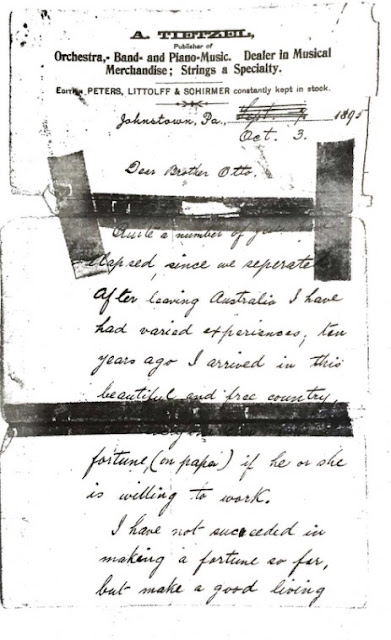 A. TIETZEL,
Publisher of
Orchestra,- Band- and Piano-Music. Dealer in Musical
Merchandise; Strings a Specialty.
Edition PETERS, LITTOLFF & SCHIRMER constantly kept in stock.
Johnstown, Pa., Sept. 1895
Oct. 3.
Dear Brother Otto.
Quite a number of
elapsed, since we seperate
After leaving Australia I have
had varied experiences; ten
years ago I arrived in this
beautiful and free country,
fortune, (on papa) if he or she
is willing to work.
I have not succeeded in
making a fortune so far,
but make a good living